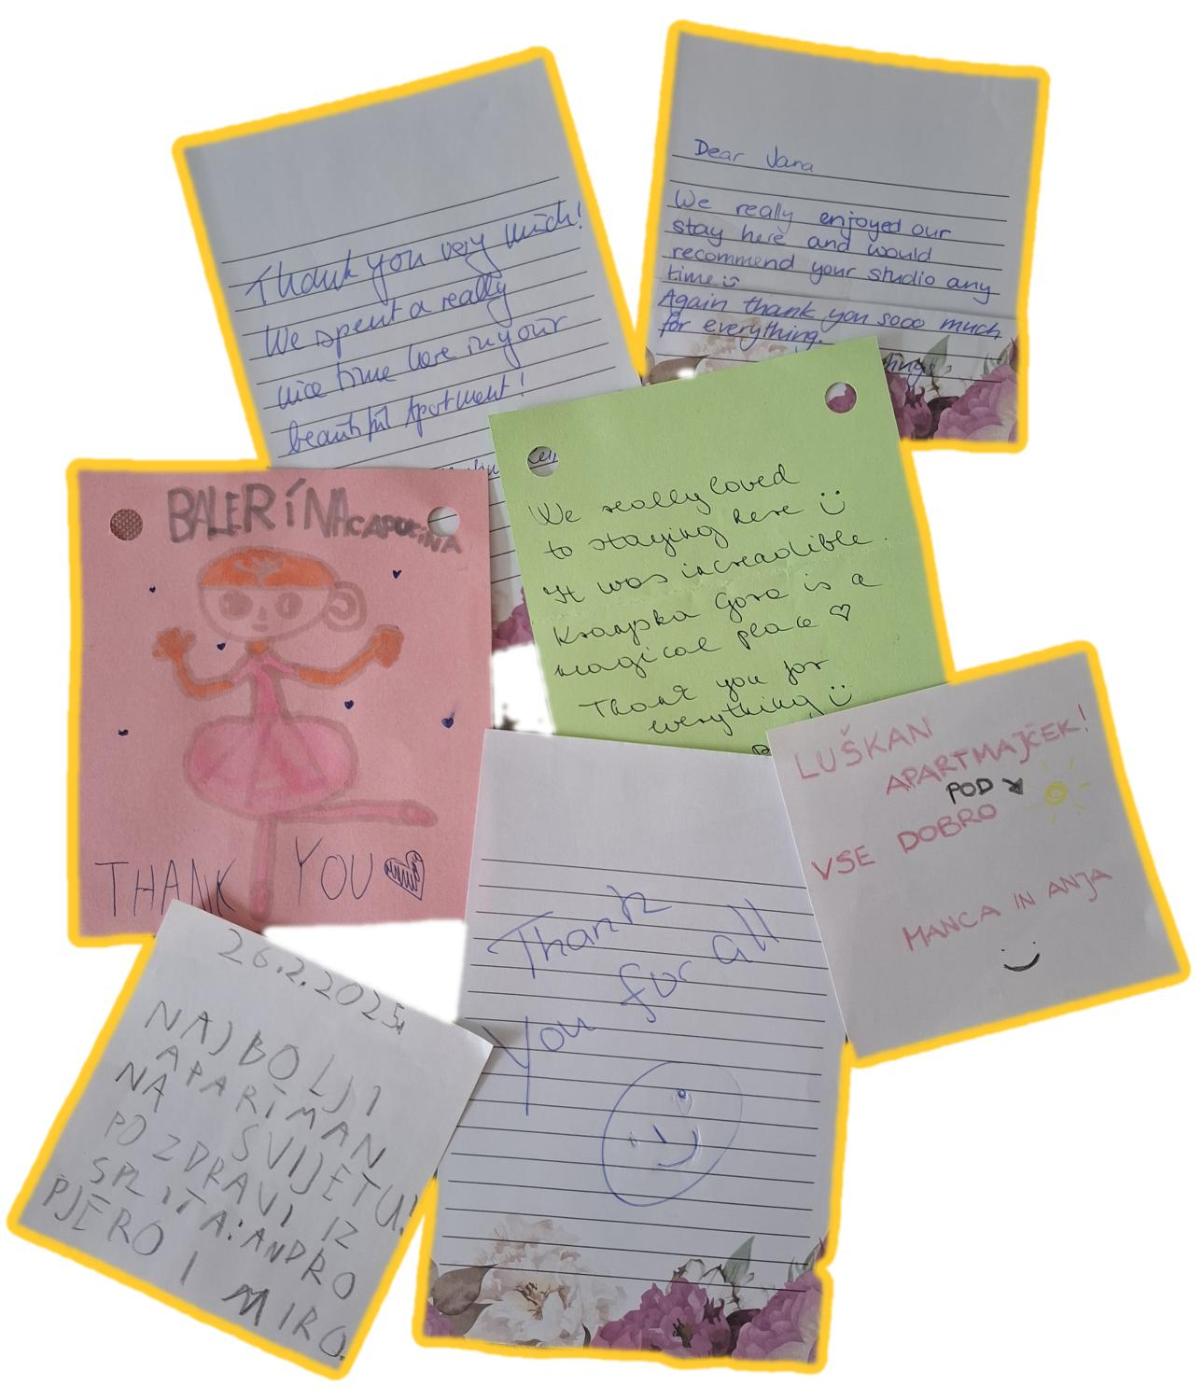 Thank you very much!
We spent a really
nice time here in your
beautiful Apartment!
Dear Jana
We really enjoyed our
stay here and would
recommend your studio any
time
Again thank you sooo much
for everything.
We really loved
to staying here
It was increadible.
Kranjska Gora is a
magical place ♡
Thank you for
everything
BALERÍNA CAPUCINA
THANK YOU
LUŠKAN
APARTMAJČEK!
POD
VSE DOBRO
MANCA IN ANJA
Thank
You for all
26.2.2025
NAJBOLJI
APARTMAN
NA SVIJETU!
POZDRAVI IZ
SPLITA: ANDRO
PJERO I MIRO.